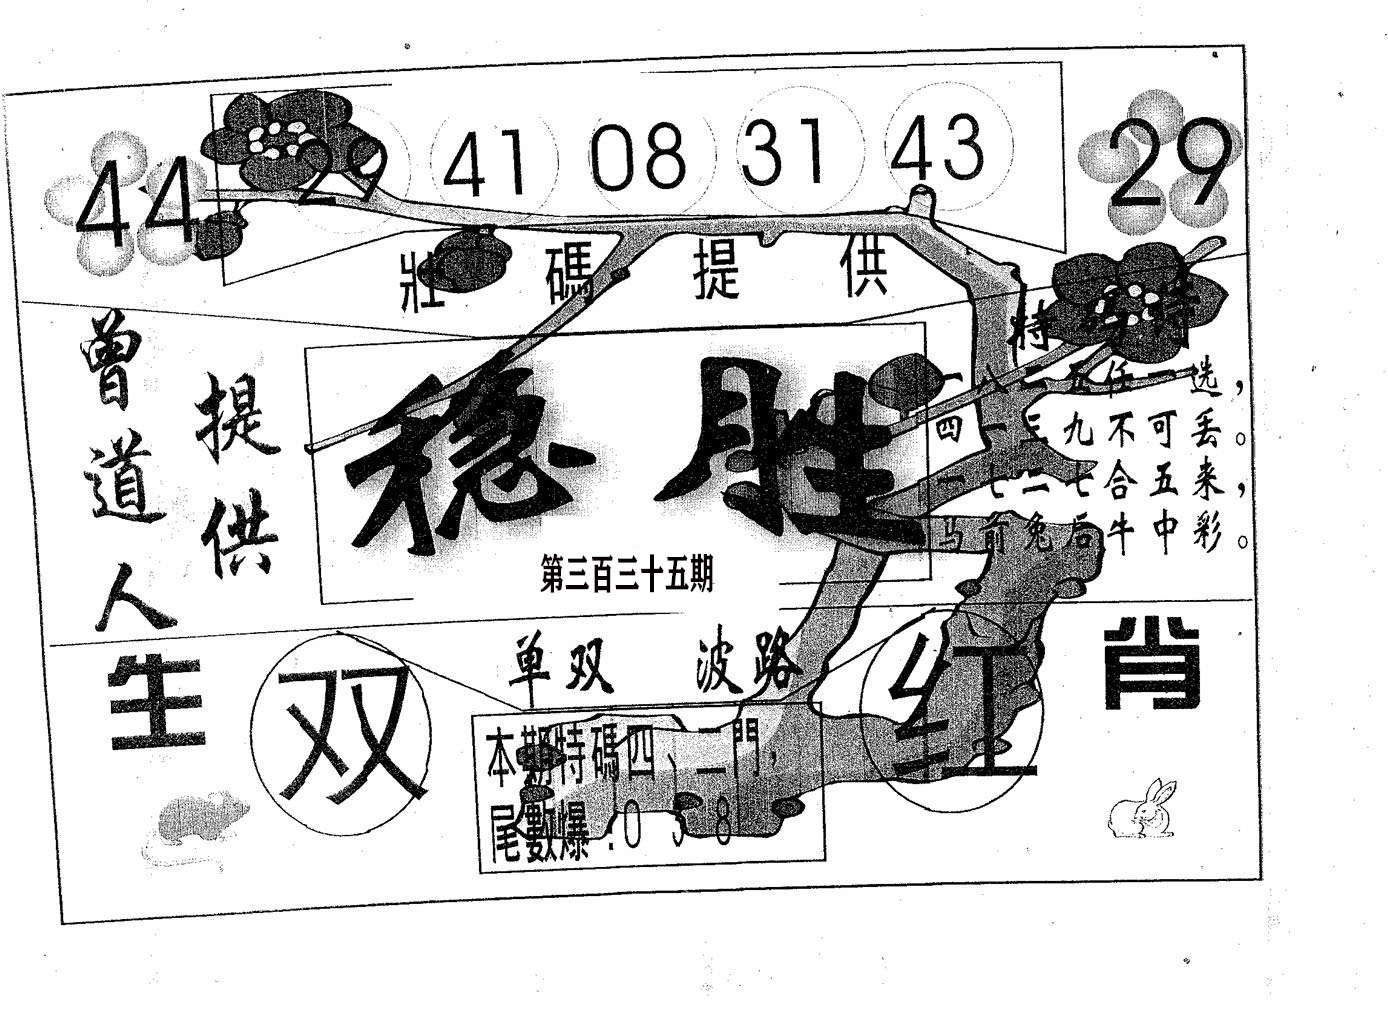 44 29 41 08 31 43 29
壯碼提供
曾道人
提供
稳胜
第三百三十五期
特
一八二五任一选，
四一三九不可丢。
一七二七合五来，
马前兔后牛中彩。
单双 波路
生肖
双
红
本期特碼四、二門，
尾數爆：0 5 8